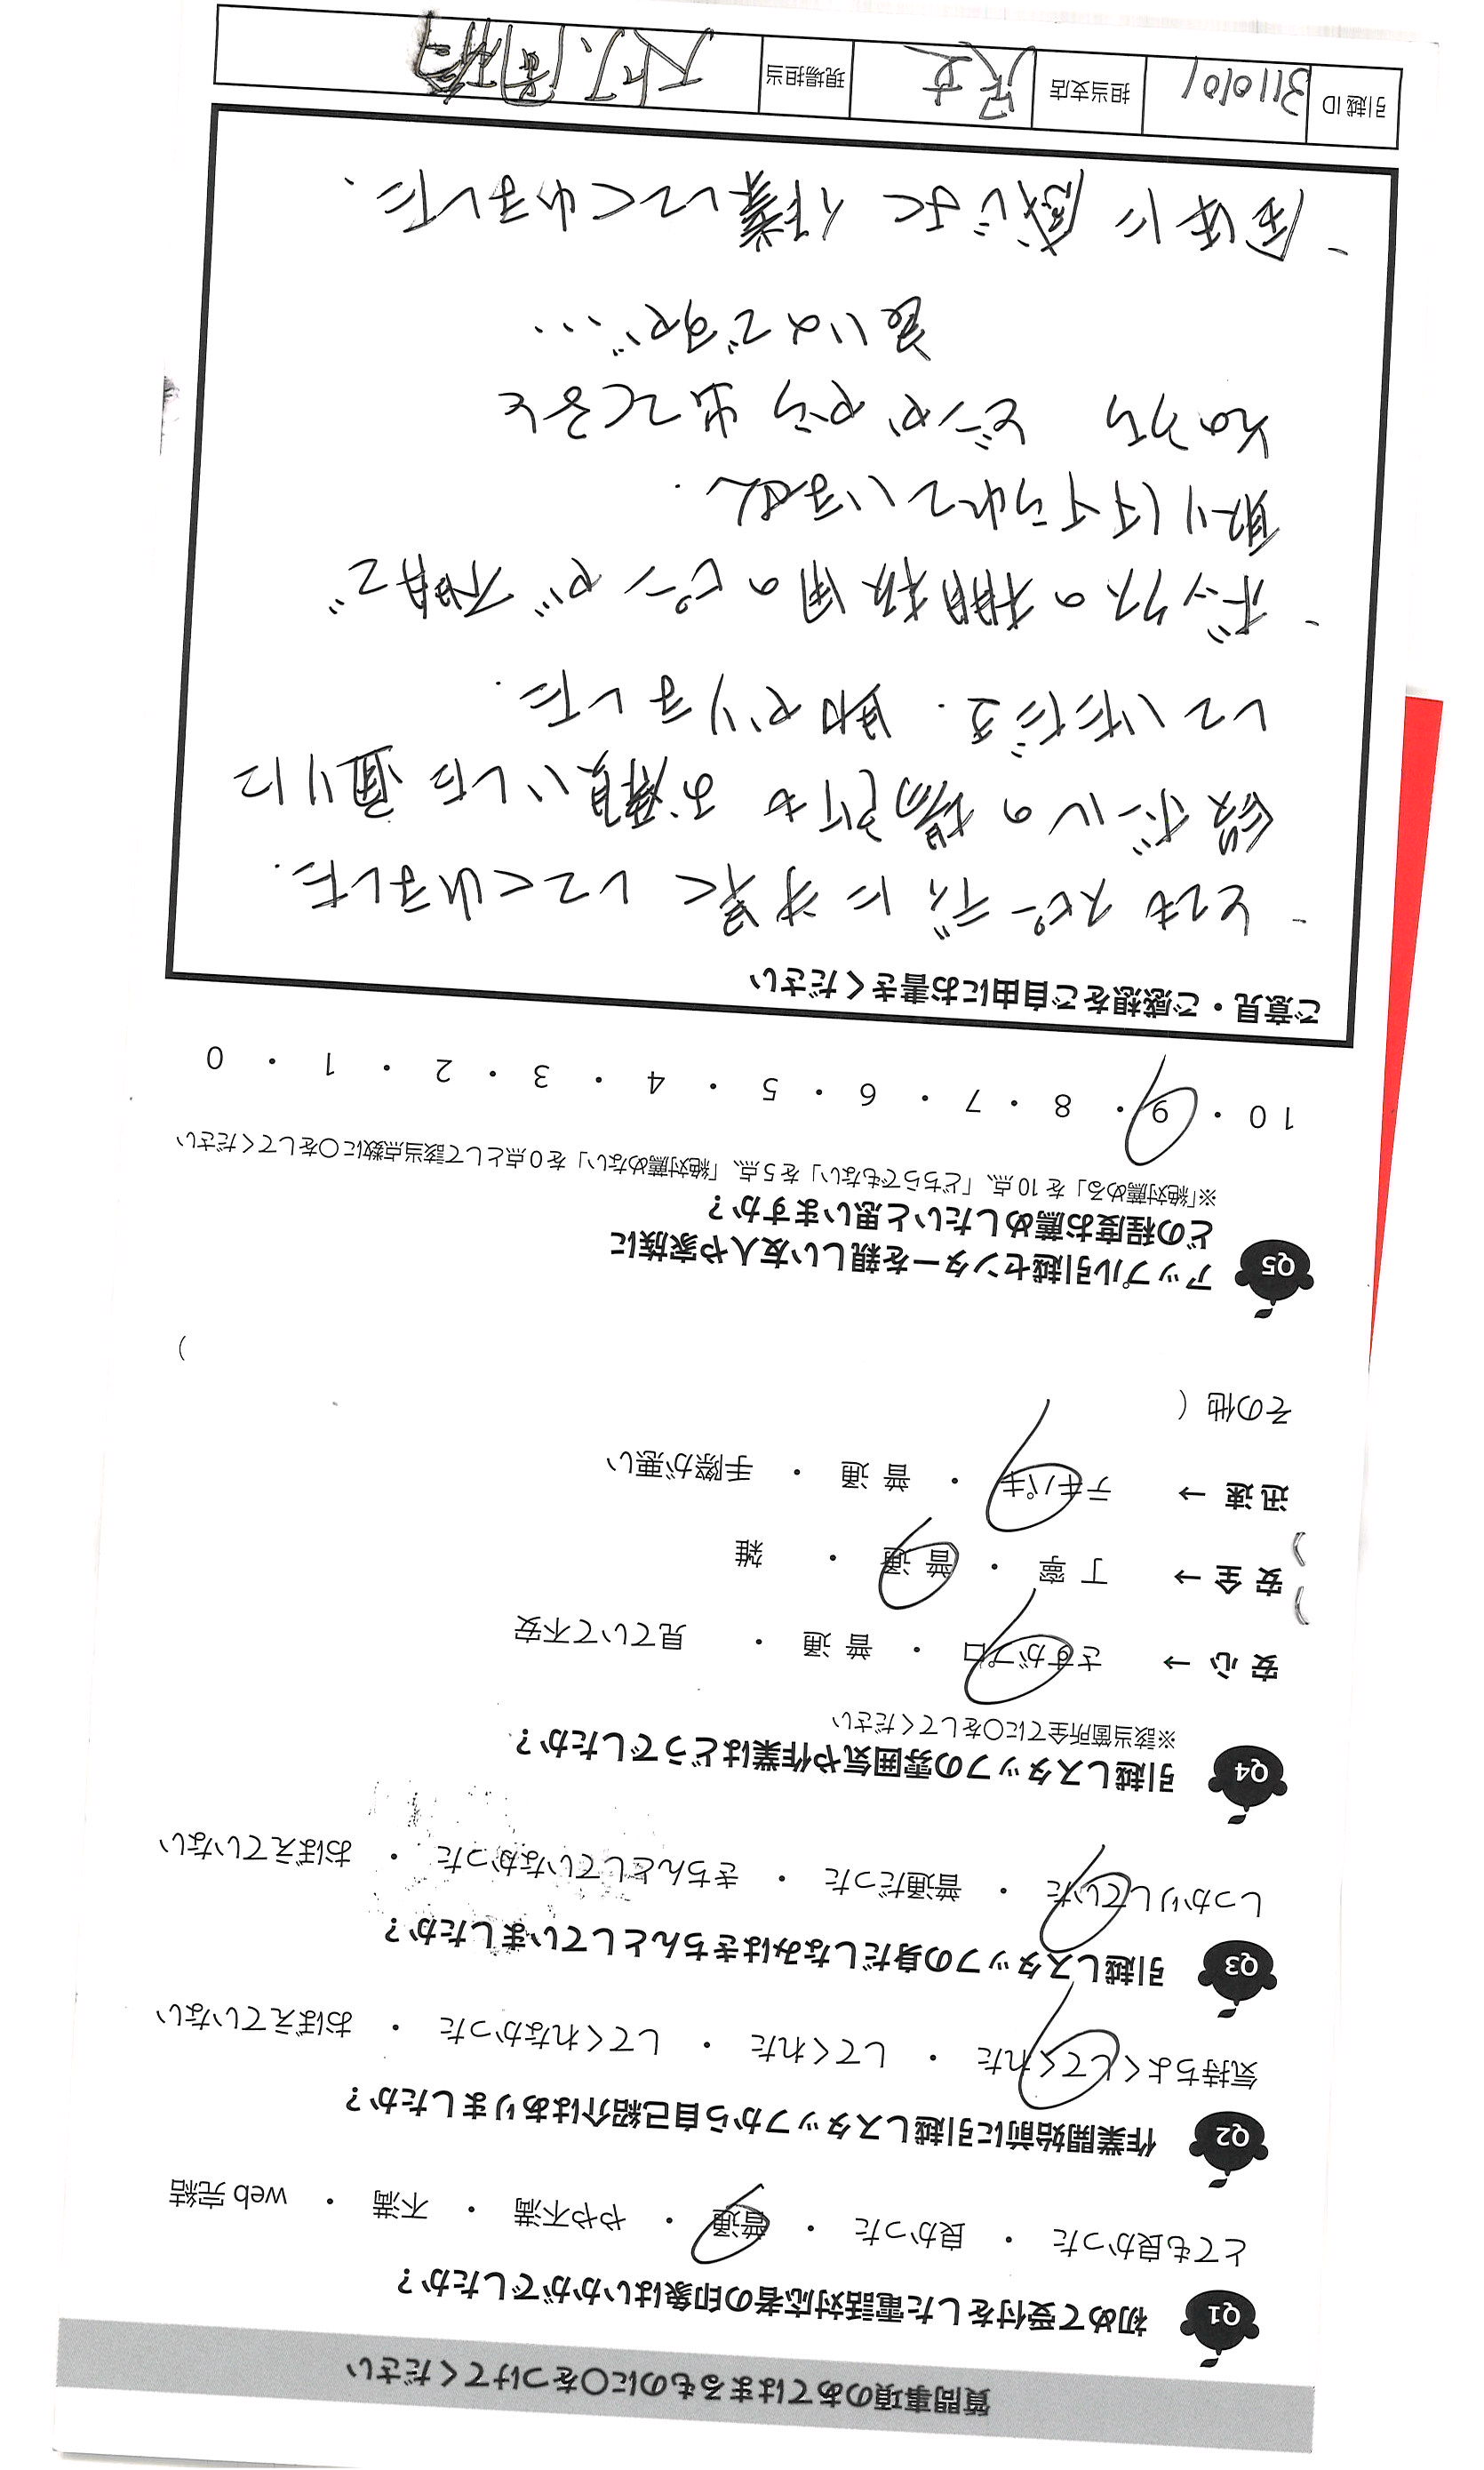 質問事項のあてはまるものに○をつけてください
Q1 初めて受付をした電話対応者の印象はいかがでしたか？
とても良かった ・ 良かった ・ 普通 ・ やや不満 ・ 不満 ・ web完結
Q2 作業開始前に引越しスタッフから自己紹介はありましたか？
気持ちよくしてくれた ・ してくれた ・ してくれなかった ・ おぼえていない
Q3 引越しスタッフの身だしなみはきちんとしていましたか？
しっかりしていた ・ 普通だった ・ きちんとしていなかった ・ おぼえていない
Q4 引越しスタッフの雰囲気や作業はどうでしたか？
※該当箇所全てに○をしてください
安心 → さすがプロ ・ 普通 ・ 見ていて不安
安全 → 丁寧 ・ 普通 ・ 雑
迅速 → テキパキ ・ 普通 ・ 手際が悪い
その他（ ）
Q5 アップル引越センターを親しい友人や家族に
どの程度お薦めしたいと思いますか？
※「絶対薦める」を10点、「どちらでもない」を5点、「絶対薦めない」を0点として該当点数に○をしてください
10 ・ 9 ・ 8 ・ 7 ・ 6 ・ 5 ・ 4 ・ 3 ・ 2 ・ 1 ・ 0
ご意見・ご感想をご自由にお書きください
- とてもスピーディに手早くしてくれました.
段ボールの場所もお願いした通りに
していただき. 助かりました.
- ボックスの棚板用のピンが不明で
取り付けられていません.
そのうち どこかから出てくると
良いのですが…
- 全体に感じよく作業してくれました.
引越ID 3110101 担当支店 現場担当